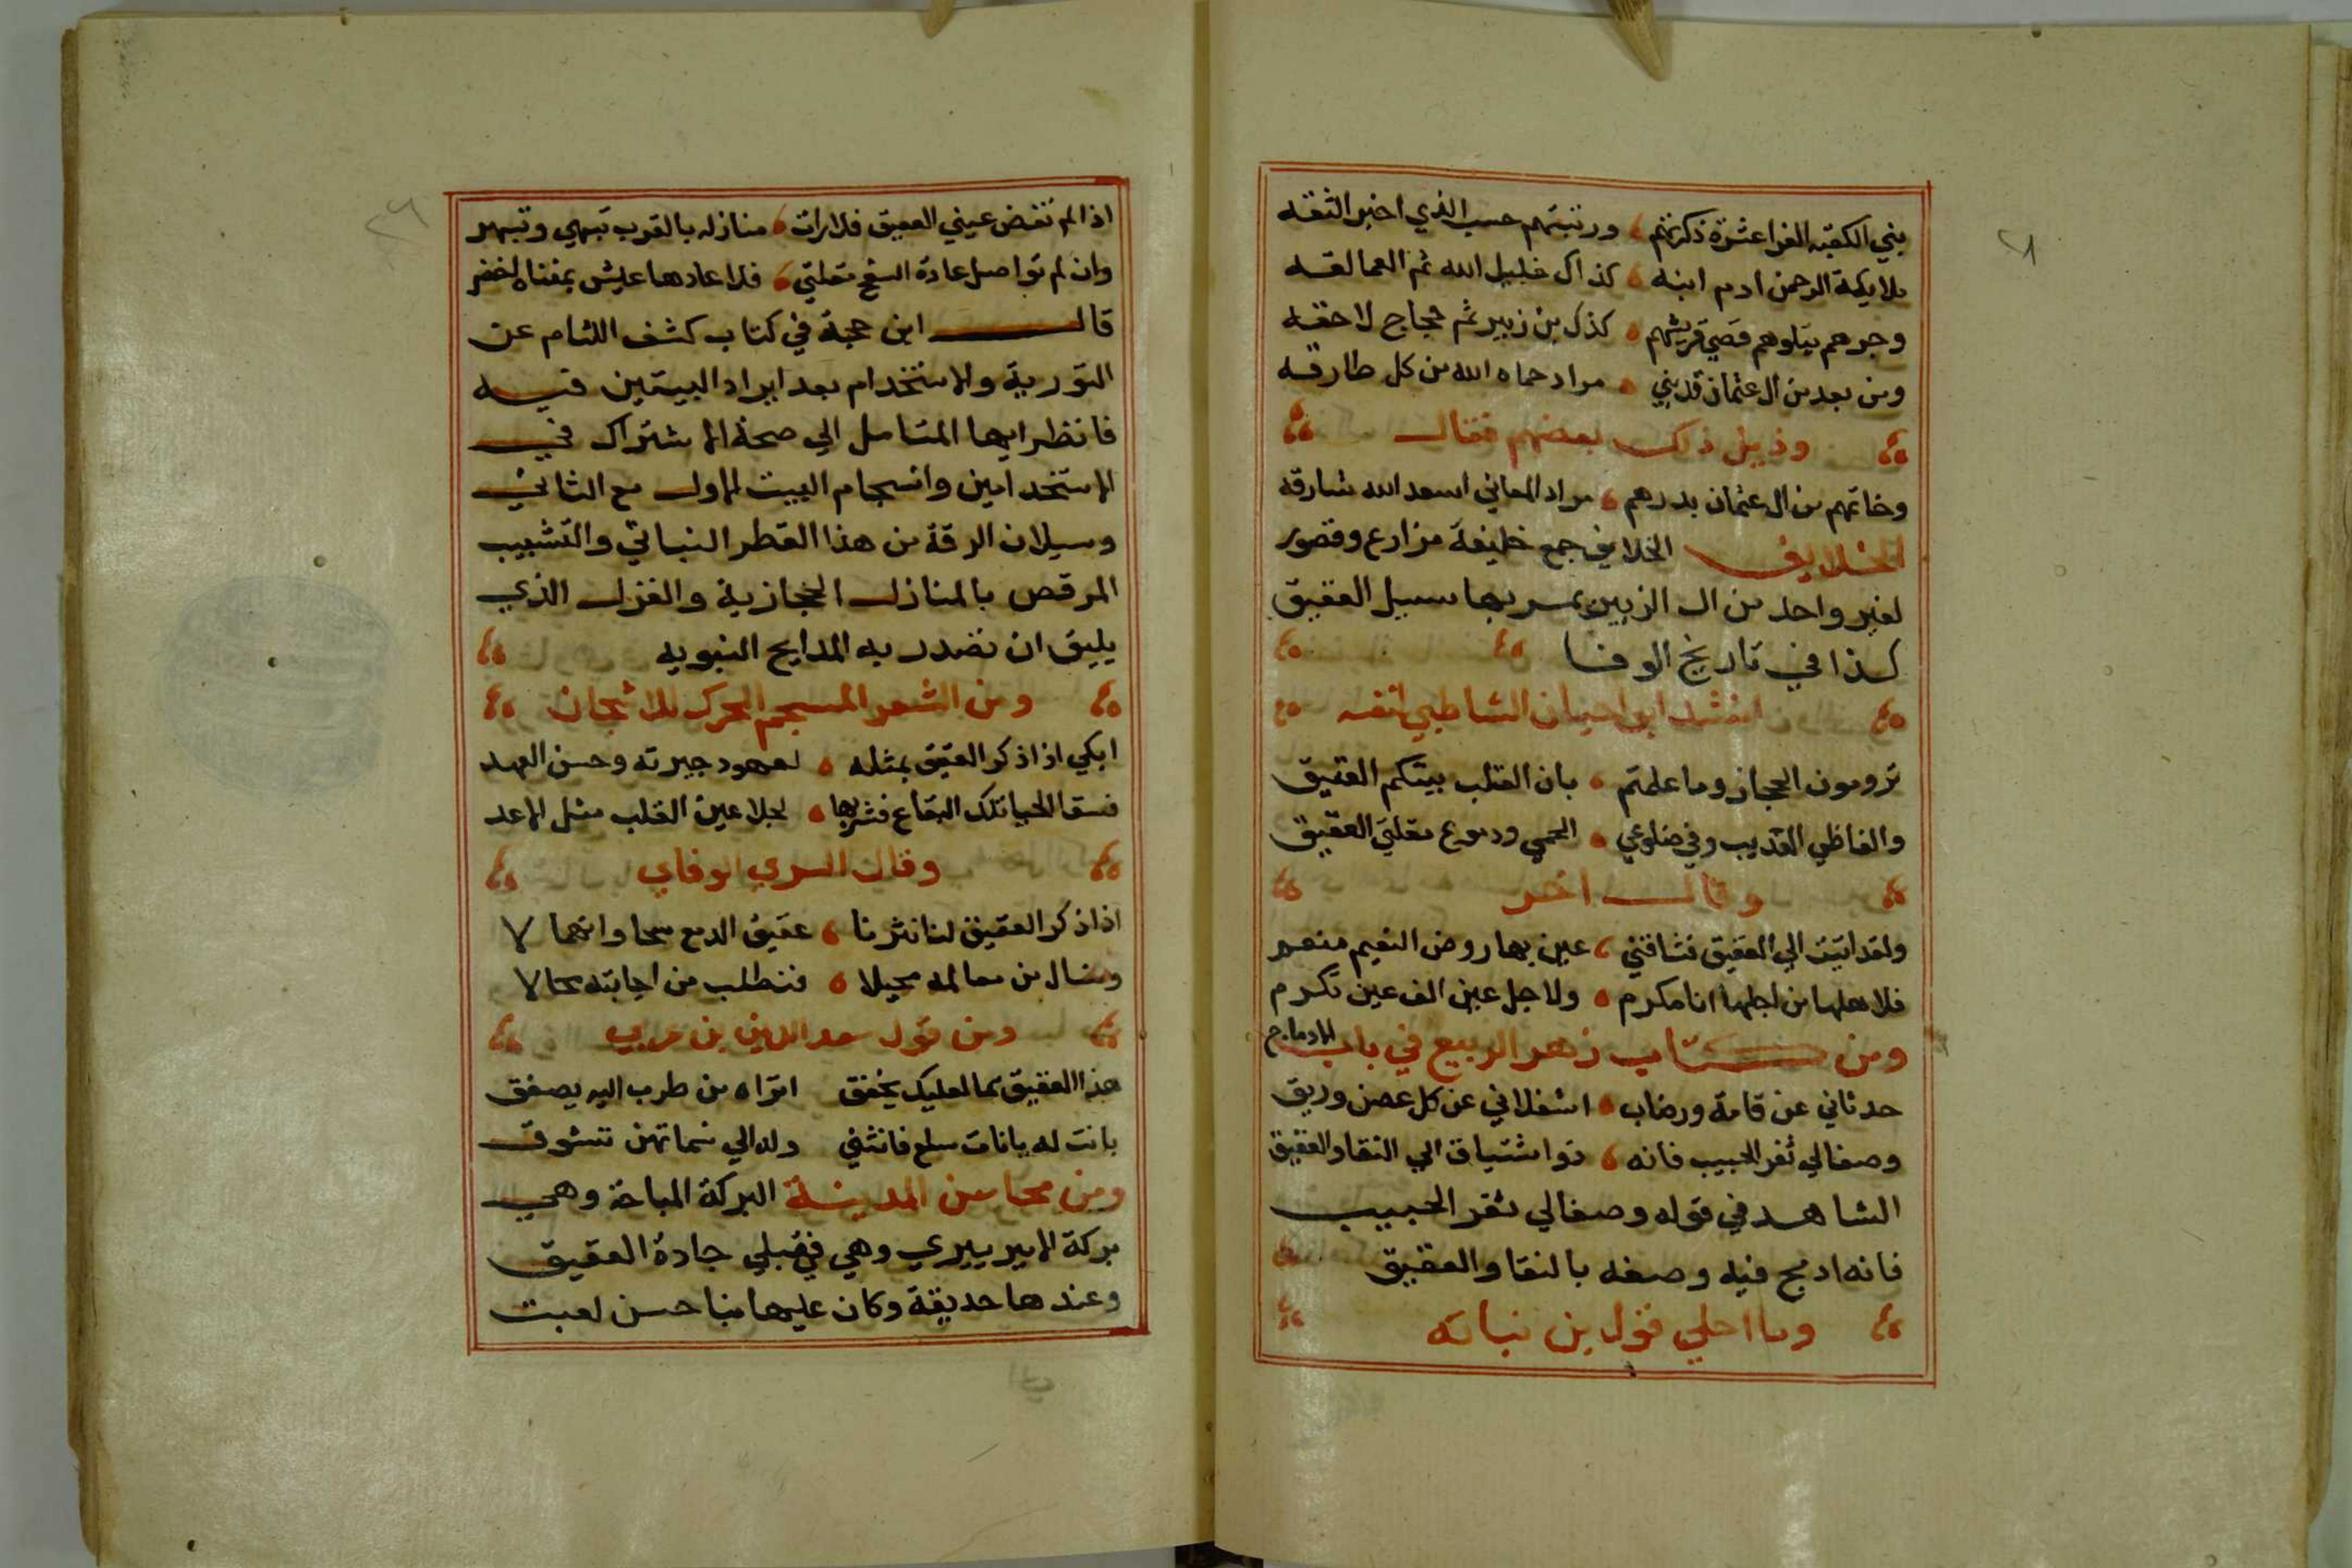 بني الكعبة الغرا عشرة ذكرتهم ورتبتهم حسب الذي اخبر الثقه
ملايكة الرحمن ادم ابنه كذاك خليل الله ثم العمالقه
وجرهم يتلوهم قصي قريشهم كذك بن زبير ثم حجاج لاحقه
ومن بعد من ال عثمان قد بني مراد حماه الله من كل طارقه
وذيل ذلك بعضهم فقال
وخاتمهم من ال عثمان بدرهم مراد المعاني اسعد الله شارقه
الخلايف الخلايف جمع خليفة مزارع وقصور
لغير واحد من ال الزبير يمر بها سيل العقيق
كذا في تاريخ الوفا
انشد ابو احيان الشاطبي لنفسه
ترومون الحجاز وما علمتم بان القلب بيتكم العتيق
والفاظي العذيب وفي ضلوعي الحمي ودموع مقلتي العقيق
وقال اخر
ولقد اتيت الي العقيق فشاقني عين بها روض النعيم منعم
فلاهلها من اجلها انا مكرم ولاجل عين الف عين تكرم
ومن كتاب زهر الربيع في باب الادماج
حدثاني عن قامة ورضاب اشغلاني عن كل غصن وريق
وصفا لي ثغر الحبيب فانه ذو اشتياق الي النقا والعقيق
الشاهد في قوله وصفا لي ثغر الحبيب
فانه ادمج فيه وصفه بالنقا والعقيق
وما احلي قول بن نباته
اذا لم تفض عيني العقيق فلا رات منازله بالقرب تبهي وتبهر
وان لم تواصل عادة السفح مقلتي فلا عادها عيش بمغناه اخضر
قال ابن حجة في كتاب كشف اللثام عن
التورية والاستخدام بعد ايراد البيتين فيه
فانظر ايها المتامل الي صحة الاشتراك في
الاستخدامين وانسجام البيت الاول مع الثاني
وسيلان الرقة من هذا القطر النباتي والتشبيب
المرقص بالمنازل الحجازية والغزل الذي
يليق ان تصدر به المدايح النبويه
ومن الشعر المسجم المحرك للاشجان
ابكي اذا ذكر العقيق بمثله لعهود جيرته وحسن العهد
فسقا الحيا تلك البقاع فشربها لجلا عين القلب مثل الاعد
وقال السري الوفاي
اذا ذكر العقيق لنا نثرنا عقيق الدمع سحا وانهمالا
ونسال من معالمه محيلا فنطلب من اجابته محالا
ومن قول سعد الدين بن عربي
هذا العقيق فما لقلبك يخفق اتراه من طرب اليه يصفق
بانت له بانات سلع فانثني وله الي نسماتهن تشوق
ومن محاسن المدينة البركة المباحة وهي
بركة الامير بيري وهي في قبلي جادة العقيق
وعندها حديقة وكان عليها مبنا حسن لعبت
الي